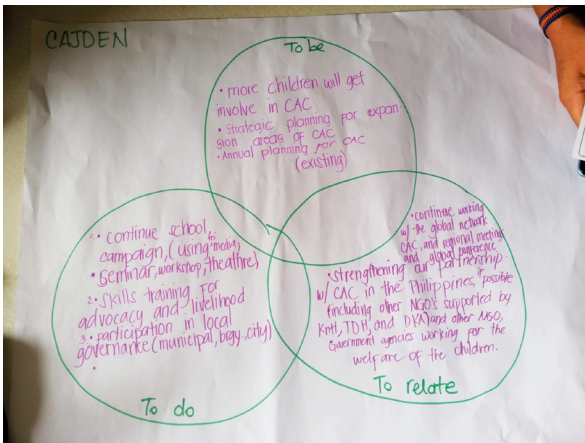 CAJDEN
To be
• more children will get
involve in CAC
• Strategic planning for expan-
sion areas of CAC
• Annual planning for CAC
(existing)
1. • continue school
campaign, (using media)
• Seminar, workshop, theathre)
2. • Skills training for
advocacy and livelihood
3. • participation in local
governance (municipal, brgy. city)
•
To do
• continue working
w/ the global network
CAC, and regional meeting
and global conference
• strengthening our partnership
w/ CAC in the Philippines, if possible
(including other NGO's supported by
KNH, TDH, and DKA) and other NGO,
Government agencies working for the
welfare of the children.
To relate